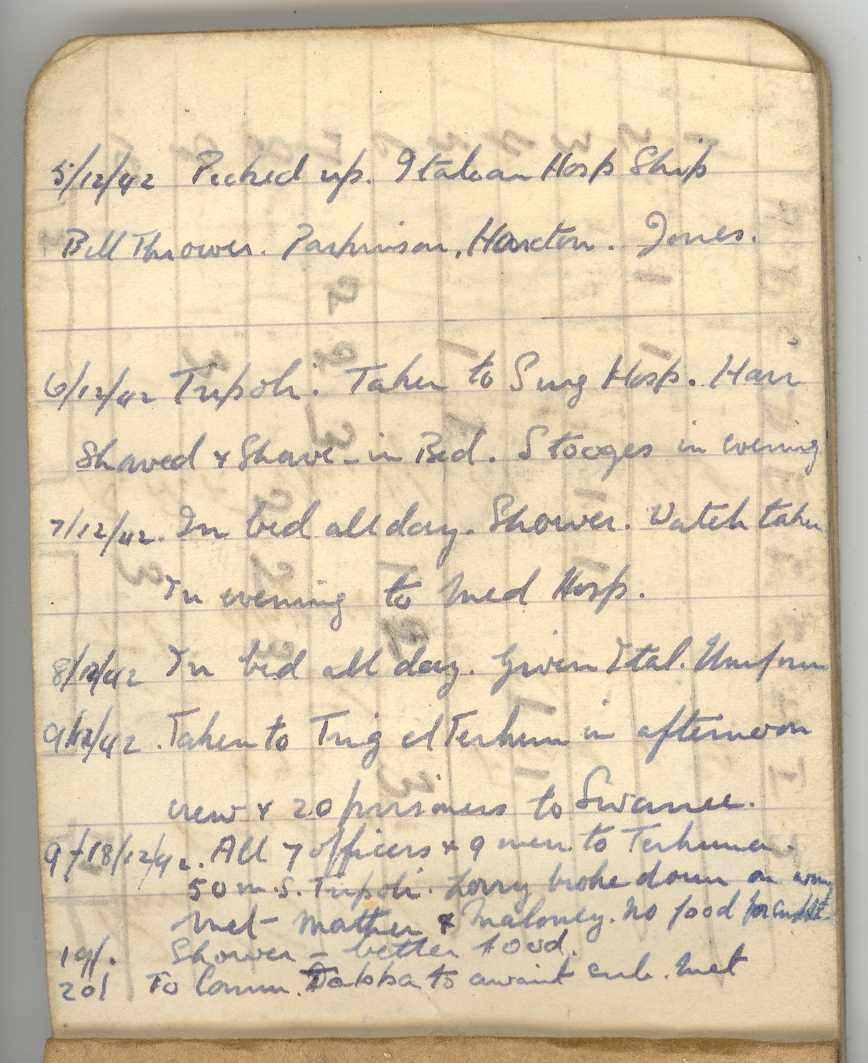 5/12/42 Picked up. Italian Hosp Ship
Bill Thrower. Parkinson, Haxton. Jones.
6/12/42 Tripoli. Taken to Surg Hosp. Hair
Shaved & Shave - in Bed. Stooges in evening
7/12/42. In bed all day. Shower. Watch taken
In evening to Med Hosp.
8/12/42 In bed all day. Given Ital. Uniform
9/12/42. Taken to Trig el Terhuna in afternoon
crew & 20 prisoners to
9-18/12/42. All 7 officers & 9 men to Terhuna.
50 m. S. Tripoli. Lorry broke down on way
Met - Mather & Maloney. No food for
19/. Shower - better food.
20/ To Comm. to await sub. Met